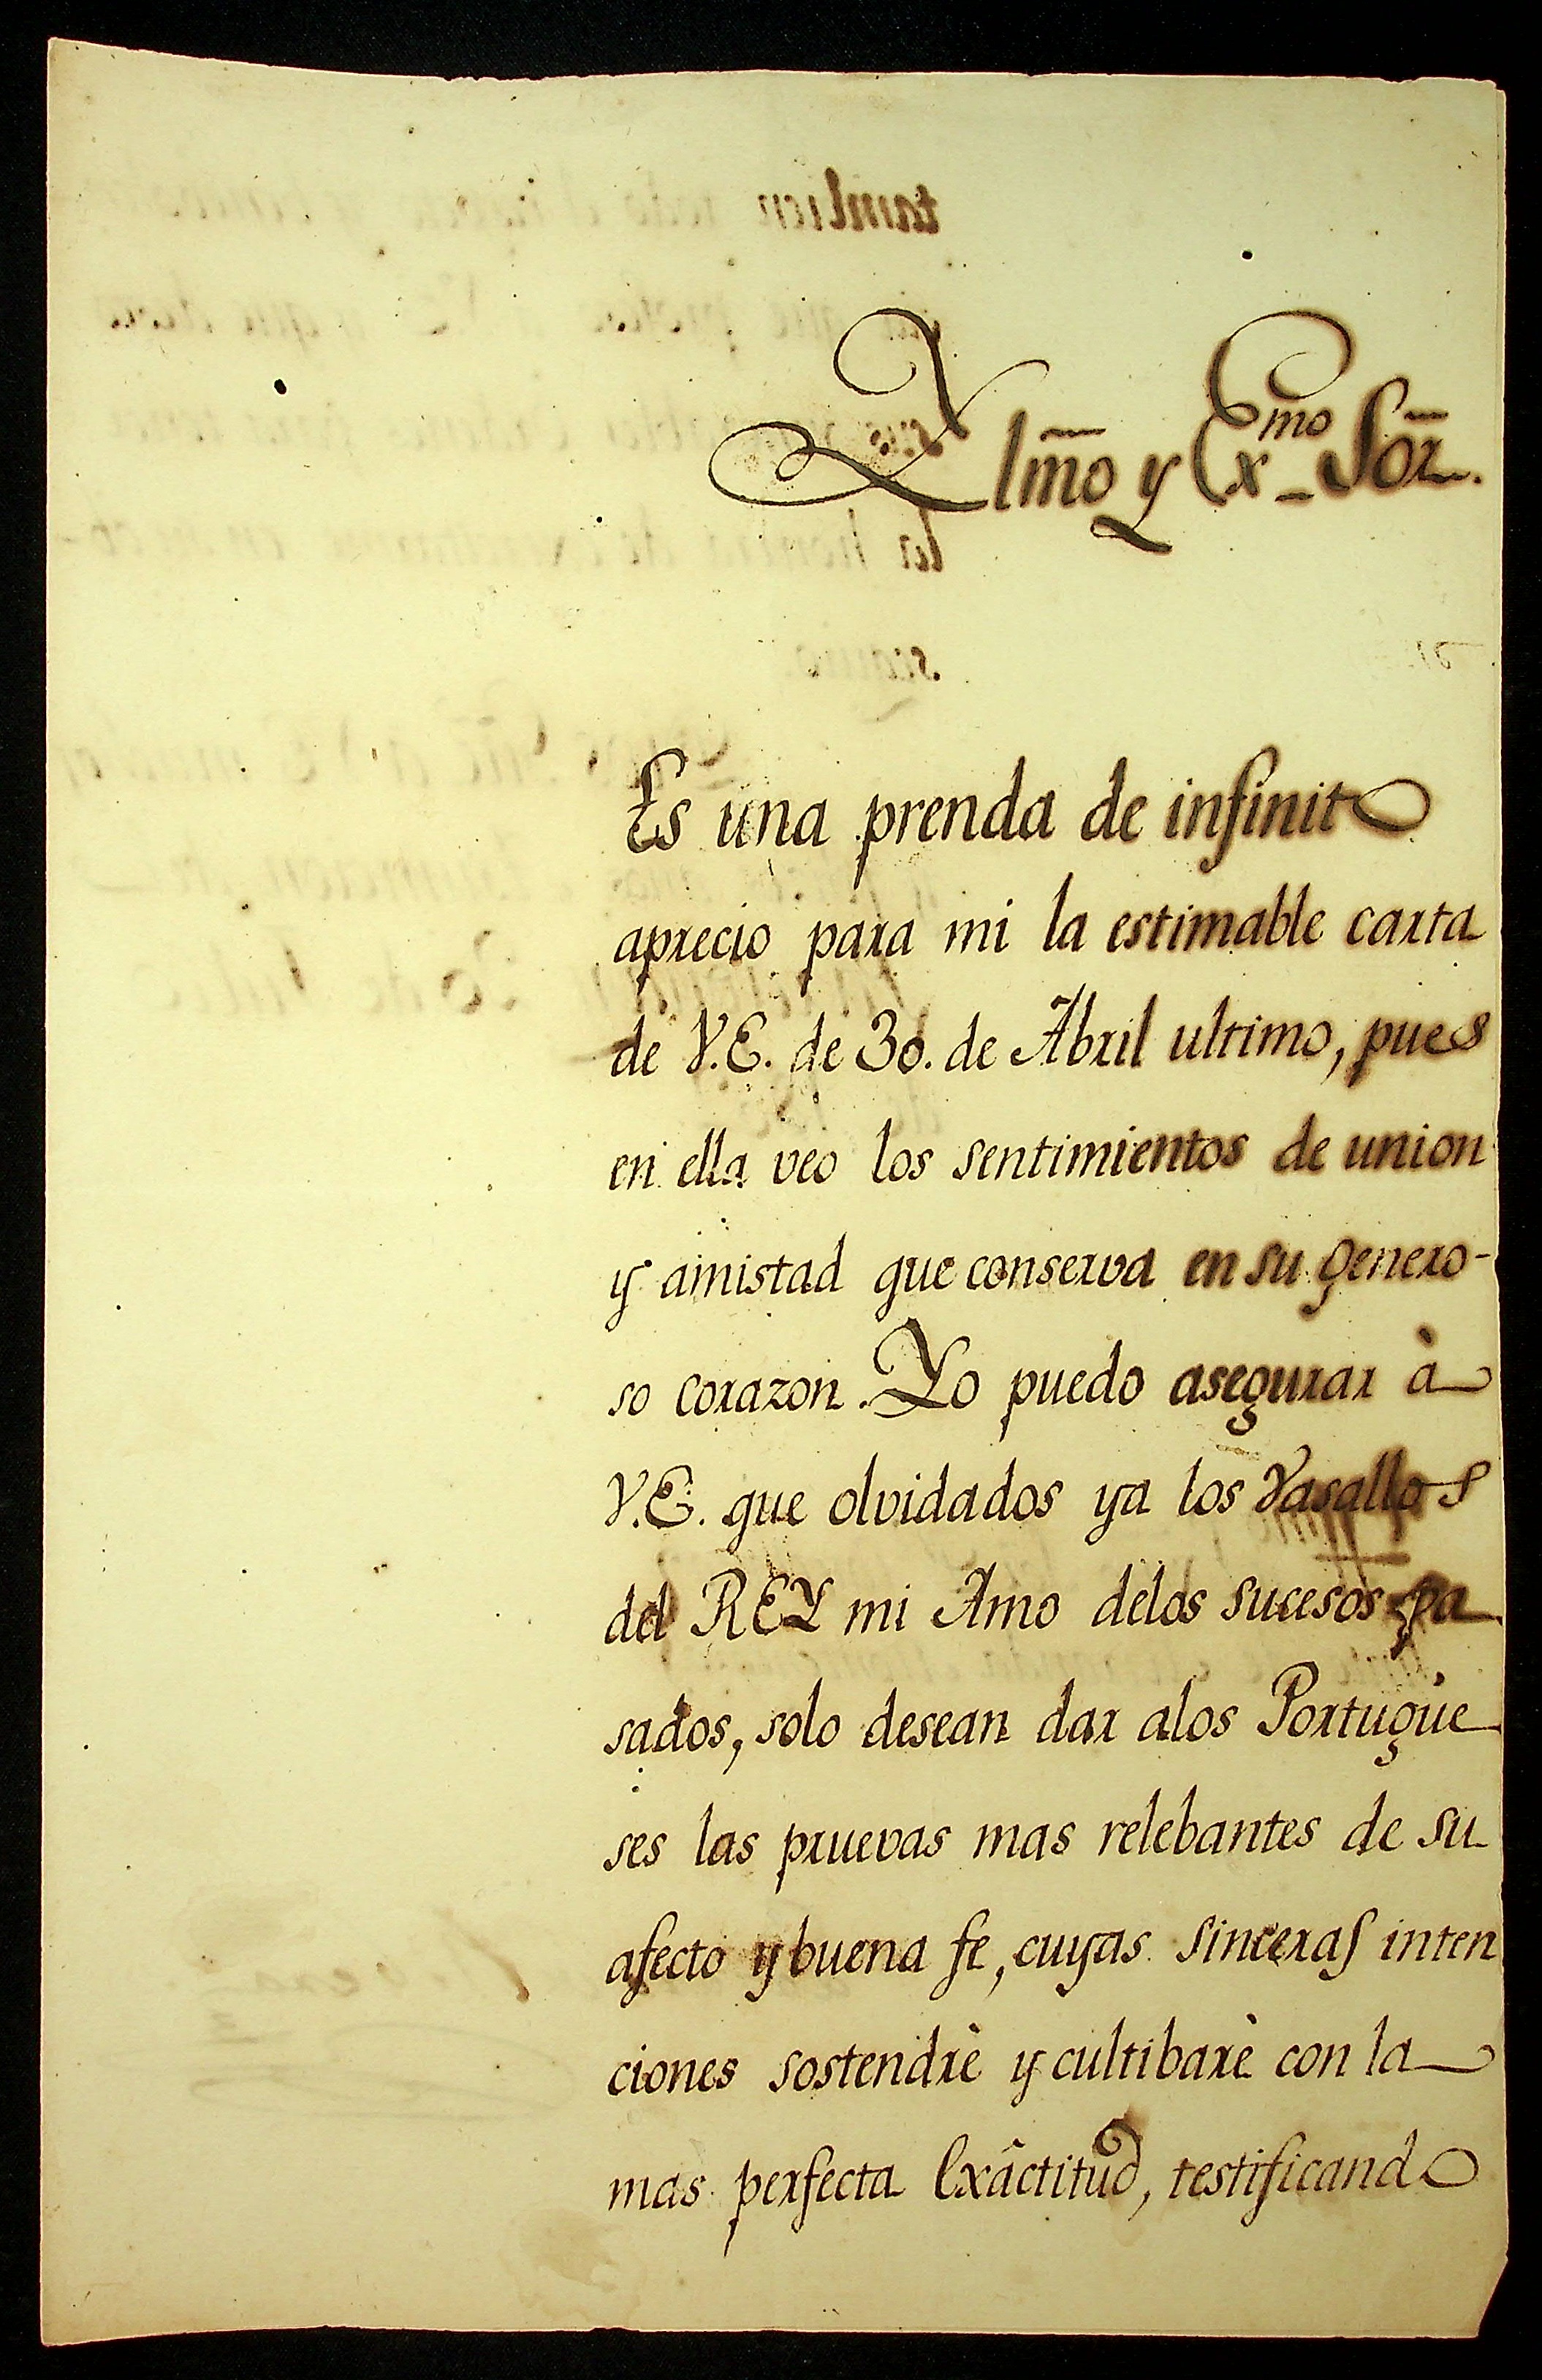 Ylm̃o y Exmo Sor̃.
Es una prenda de infinito
aprecio para mi la estimable carta
de V.E. de 30. de Abril ultimo, pues
en ella veo los sentimientos de union
y amistad que conserva en su genero-
so corazon. Yo puedo asegurar à
V.E. que olvidados ya los Vasallos
del REY mi Amo delos sucesos pa
sados, solo desean dar alos Portugue
ses las pruevas mas relebantes de su
afecto y buena fe, cuyas sinceras inten
ciones sostendrè y cultibarè con la
mas perfecta Exâctitud, testificando